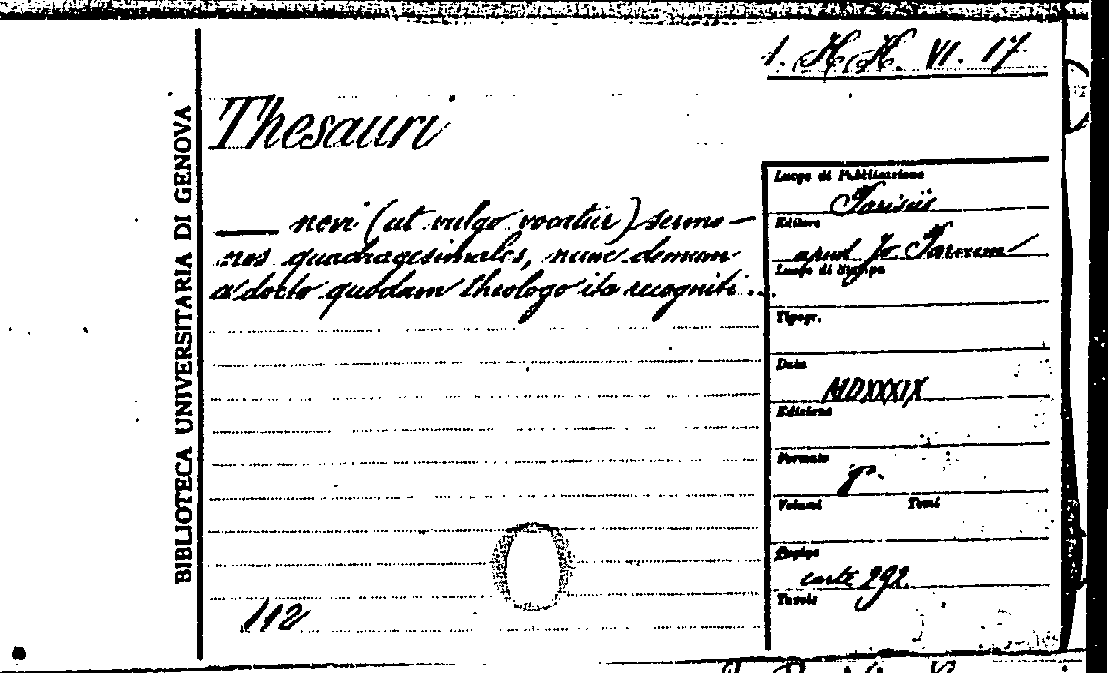 1. HH. VI. 17
BIBLIOTECA UNIVERSITARIA DI GENOVA
Thesauri
novi (ut vulgo vocatur) sermo-
nes quadragesimales, nunc demum
a docto quodam theologo ita recogniti...
112
Luogo di Pubblicazione
Parisiis
Editore
apud Jo
Luogo di Stampa
Tipogr.
Data
MDXXXIX
Edizione
Formato
Volumi Tomi
Pagine
carte 292
Tavole